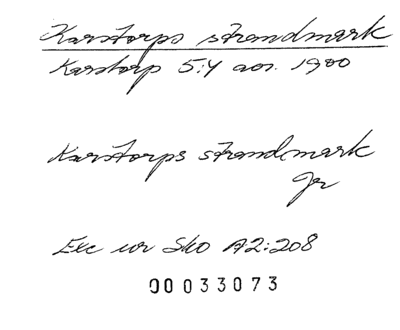 Karstorps strandmark
Karstorp 5:4 avs. 1900
Karstorps strandmark
Jr
Exc ur Sko A2:208
00033073